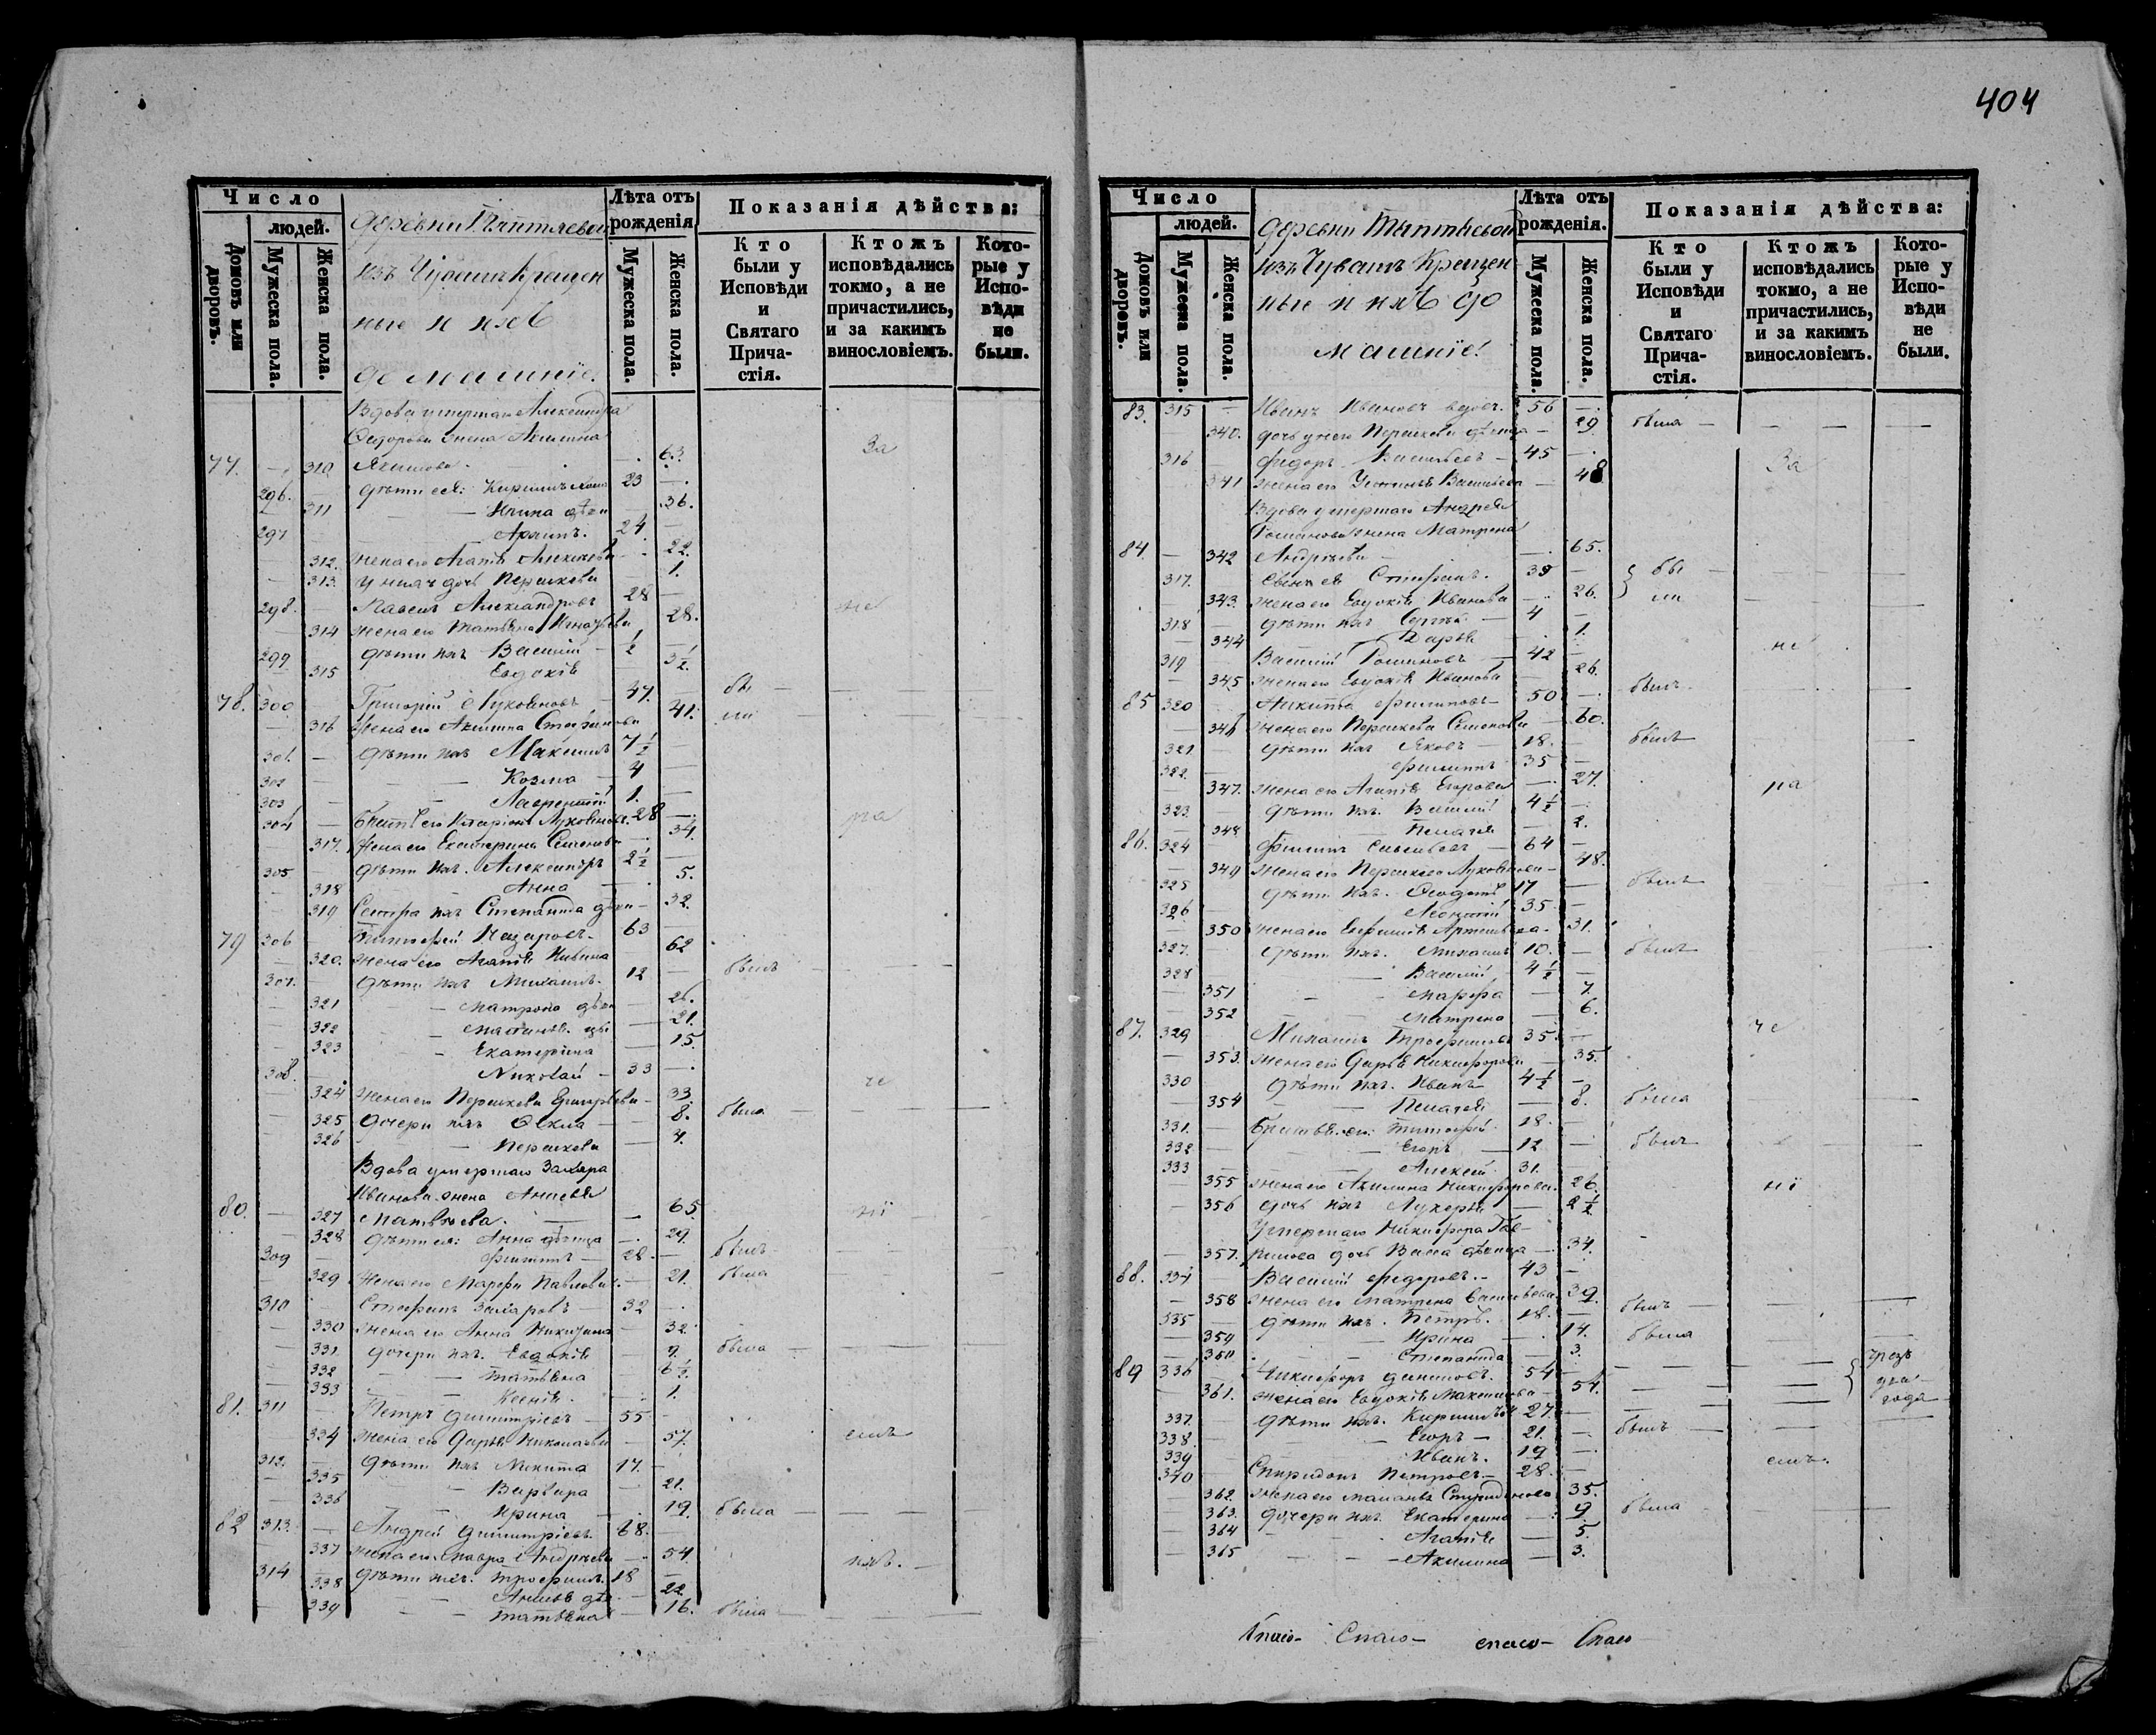 404
Число
людей.
Домовъ или дворовъ.
Мужеска пола.
Женска пола.
деревни
изъ Чувашъ крещен
ные и ихъ
домашніе.
Лѣта отъ рожденія
Мужеска пола.
Женска пола.
Показанія дѣйства:
Кто были у Исповѣди и Святаго Причастія.
Ктожъ исповѣдались токмо, а не причастились, и за какимъ винословіемъ.
Которые у Исповѣди не были.
Вдова умершаго Александра
Ѳедорова жена Акилина
77. 310 63. За
296. дѣти ея: 23
311 36.
297 Архипъ. 24
312. жена его Агапія Алексѣева 22.
313. у нихъ дочь Параскева 1.
298. Павелъ Александровъ 28 не
314 жена его Татьяна Игнатьева 28.
299 дѣти ихъ Василий
315 Евдокія 3½
78. 300 Григорий Лукояновъ 47. бы
316 жена его Акилина Стефанова 41. ли
301. дѣти ихъ Максимъ 7½
302 Козма 4
303 Лаврентий 1.
304 Братъ его Иларіонъ Лукояновъ 28 ра
317. жена его Екатерина Семенова 34.
305 дѣти ихъ. Александръ 2½
318 Анна 5.
319 Сестра ихъ Степанида дѣви 32.
79 306 Тимофей Назаровъ 63
320. жена его Агапія 62
307. дѣти ихъ Михаилъ 12 былъ
321 Матрона 26.
322 21.
323 Екатерина 15.
308. Николай 33 че
324 жена его Параскева Григорьева 33.
325 дочери ихъ Ѳекла 8. была
326 Параскева 4.
Вдова умершаго Захара
Иванова жена Анисья
80. 327 Матвѣева. 65 ні
328 дѣти ея: Анна дѣвица 29.
309 Филиппъ 28. былъ
329 жена его Марфа Павлова 21. была
310 Стефанъ Захаровъ 32
330 жена его Анна Никитина 32.
331 дочери ихъ. Евдокія 9. была
332 Татьяна 6½
333 Ксенія. 1.
81. 311 Петръ Димитріевъ 55
334 жена его Дарья Николаева 57. емъ
312. дѣти ихъ Никита 17.
335 Варвара 21.
336 Ирина 19. была
82 313. Андрей Димитріевъ 68.
337 жена его Мавра Андреева 54. ихъ.
314 дѣти ихъ. Трофимъ. 18
338 22.
339 Татьяна 16. была
Число
людей.
Домовъ или дворовъ.
Мужеска пола.
Женска пола.
деревни
изъ Чувашъ Крещен
ные и ихъ до
машніе.
Лѣта отъ рожденія.
Мужеска пола.
Женска пола.
Показанія дѣйства:
Кто были у Исповѣди и Святаго Причастія.
Ктожъ исповѣдались токмо, а не причастились, и за какимъ винословіемъ.
Которые у Исповѣди не были.
83. 315 Иванъ Ивановъ вдовъ. 56
340. дочь у него Параскева дѣвица 29. была
316 Федоръ Васильевъ 45 За
341 жена его Устинья Васильева 48
Вдова умершаго Андрея
Романова жена Матрена
84. 342 Андреева 65.
317. Сынъ ея Стефанъ. 39 бы
343. жена его Евдокія Иванова 26. ли
318 дѣти ихъ Сергѣй 4
344 Дарья 1.
319 Василий Романовъ 42 ні
345 жена его Евдокія Иванова 26.
85 320 Никита Филиповъ 50 былъ
346 жена его Параскева Семенова 60.
321 дѣти ихъ Яковъ 18. былъ
322. Филиппъ 35
347. жена его Агапія Егорова 27. ра
323. дѣти ихъ. Василий 4½
348 Пелагея 2.
86. 324 Филипъ Савельевъ 64
349 жена его Параскева Лукоянова 48.
325 дѣти ихъ. Ѳеодотъ 17 былъ
326 Леонтий 35
350 жена его Ефимія Артемьева 31.
327. дѣти ихъ. Михаилъ 10. былъ
328 Василий 4½
351 Марфа 7.
352 Матрена 6.
87. 329 Михаилъ Трофимовъ 35. че
353. жена его Дарья Никифорова 35.
330 дѣти ихъ. Иванъ 4½
354 Пелагея 8. была
331. Братья его: Тимофей 18.
332 Егоръ 12 былъ
333 Алексей 31.
355 жена его Акилина Никифорова. 26. ні
356 дочь ихъ Лукерья 2½
Умершаго Никифора Гав-
357. рилова дочь Васса дѣвица 34.
88. 334 Василий Федоровъ. 43
358 жена его Матрена Савельева 39.
335 дѣти ихъ. Петръ. 18. былъ
359 Ирина 14. была
360 Степанида 3.
89 336 Никифоръ Даниловъ. 54 чрезъ
361. жена его Евдокія Максимова 54. два
года
337. дѣти ихъ. Кириллъ 27.
338. Егоръ 21. былъ
339 Иванъ. 19
340 Спиридонъ Петровъ 28. емъ.
362. жена его Спиридонова 35.
363. дочери ихъ Екатерина 9. была
364 Агапія 5.
365 Акилина 3.
Спасо- Спасо- спасо- Спасо